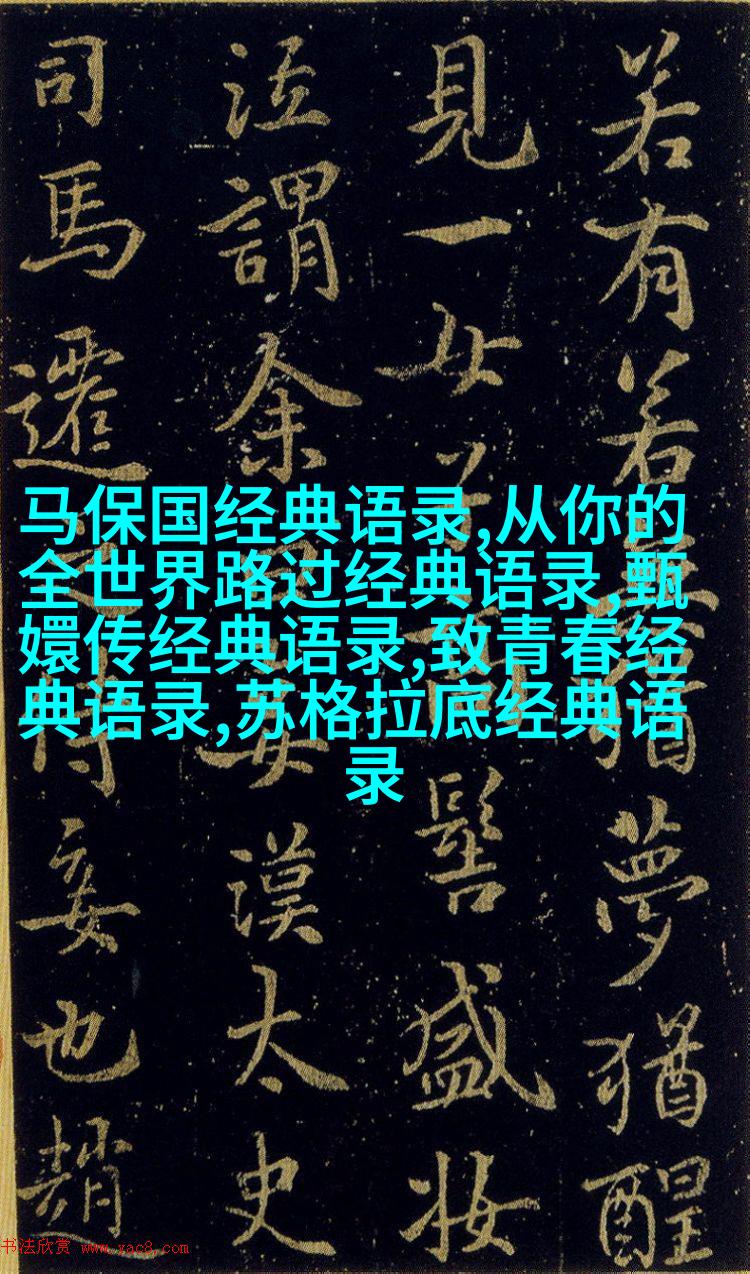 若有若無猶夢猶醒
見一女首高髻盛妝
泣謂余曰妾漢太史
司馬遷之侍妾也趙
马保国经典语录,从你的
全世界路过经典语录,甄
嬛传经典语录,致青春经
典语录,苏格拉底经典语
录
书法欣赏 www.yac8.com